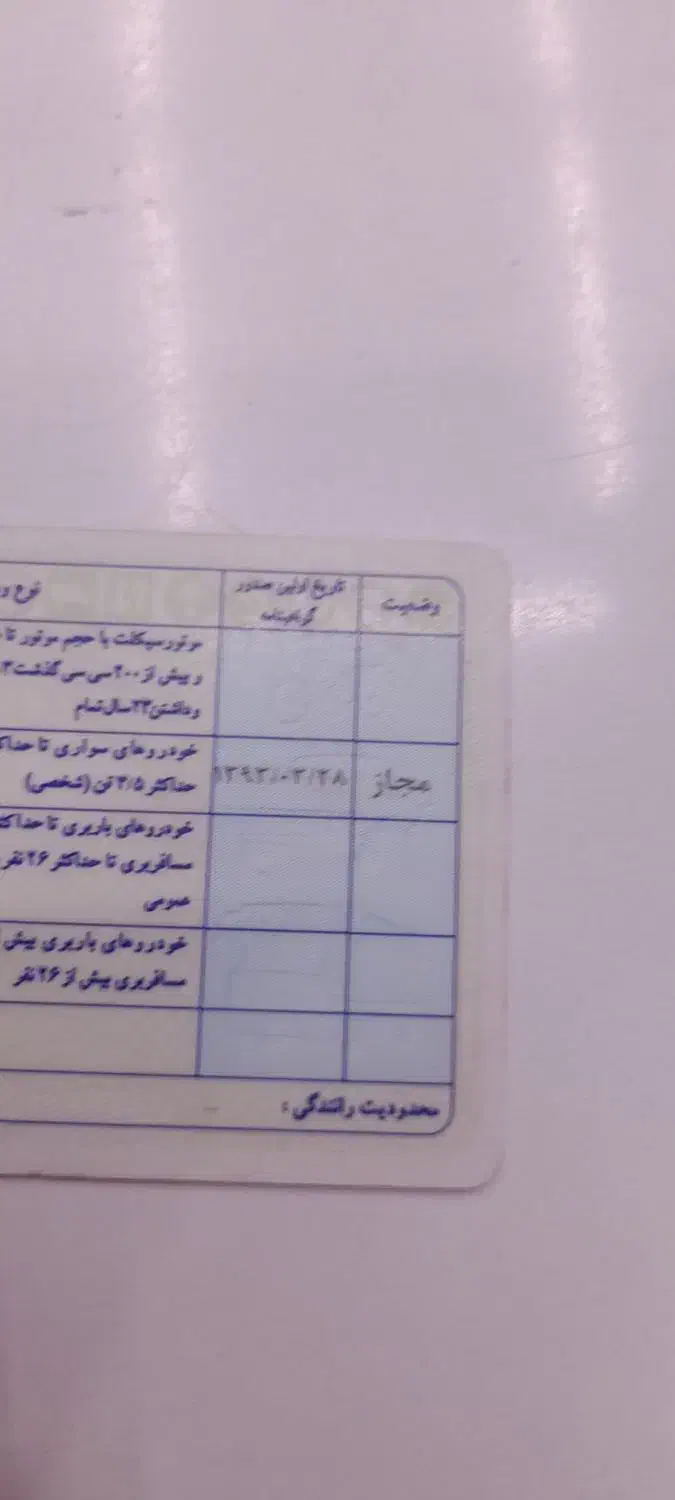 وضعیت
تاریخ اولین صدور
گواهینامه
نوع و
موتورسیکلت با حجم موتور تا
و بیش از ۲۰۰سی سی گذشت۲
وداشتن۲۳سال‌تمام
مجاز
۱۳۹۳/۰۳/۲۸
خودروهای سواری تا حداک
حداکثر ۳/۵ تن (شخصی)
خودروهای باربری تا حداکث
مسافربری تا حداکثر ۲۶ نفر
عمومی
خودروهای باربری بیش
مسافربری بیش از ۲۶ نفر
محدودیت رانندگی :